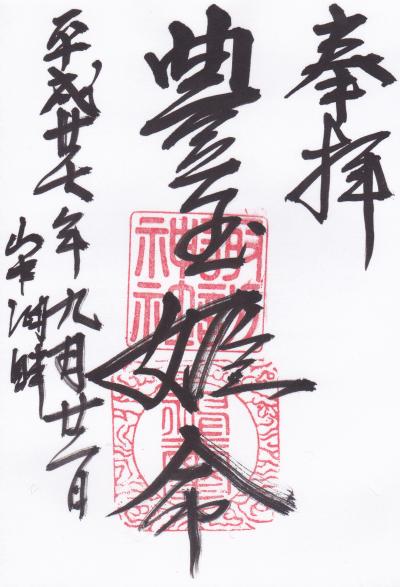 奉拝
豊玉姫命
平成廿七年九月廿二日
山中湖畔